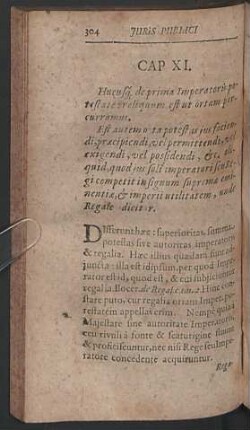 304 JURIS PUBLICI
CAP XI.
Hucusq; de prima Imperatoris po-
testate: reliquum est ut ortam per-
curramus.
Est autem ita potestas jus facien-
di, præcipiendi, vel permittendi, vel
exigendi, vel possidendi, &c. ali-
quid, quod jus soli imperatori seu Re-
gi competit in signum supremæ emi-
nentiæ, & imperii utilitatem, unde
Regale dicitur.
Differunt hæc: superioritas, summa
potestas sive autoritas imperatoris
& regalia. Hæc illius quadam sunt ad-
juncta: illa est id ipsum, per quod Impe-
rator est id, quod est, & cui subjiciuntur
regalia. Bocer. de Regal. c. 1. n. 2. Hinc con-
stare puto, cur regalia ortam Imper. po-
testatem appellas erim. Nempe quia à
Majestate sive autoritate Imperatoris,
ceu rivuli à fonte & scaturigine fluunt
& proficiscuntur, nec nisi Rege seu Impe-
ratore concedente acquiruntur.
Rega-